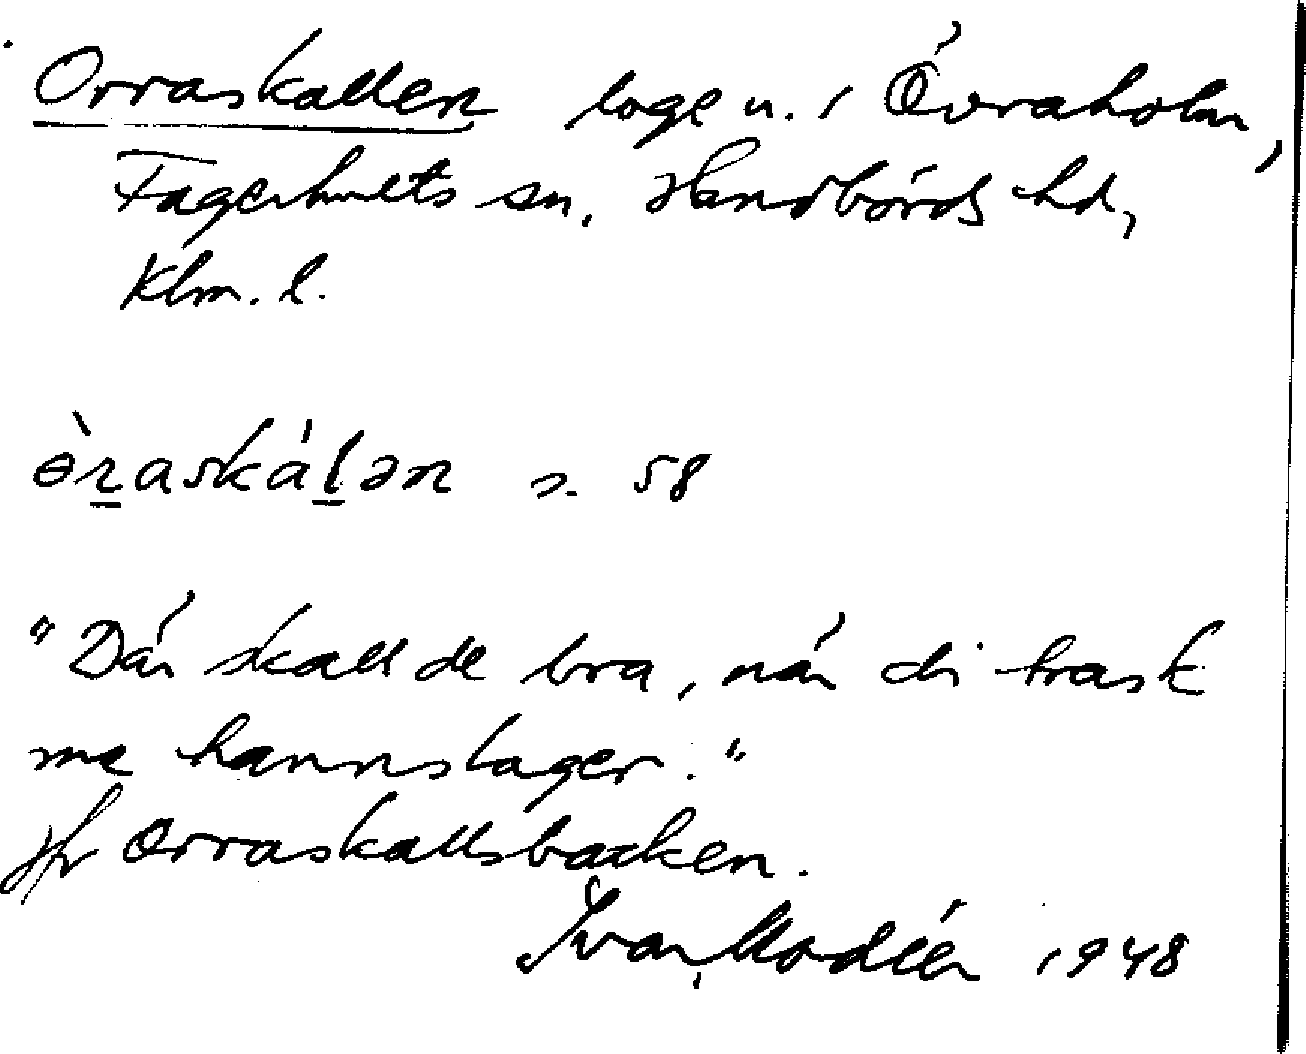 Orraskallen loge n. i Övraholm,
Fagerhults sn, Handbörds hd,
Klm. l.
ɵ̀r̲askál̲ən s. 58
"Där skall de bra, när di trask
me hannslager."
Jfr Orraskallsbacken.
Ivar Modéer 1948